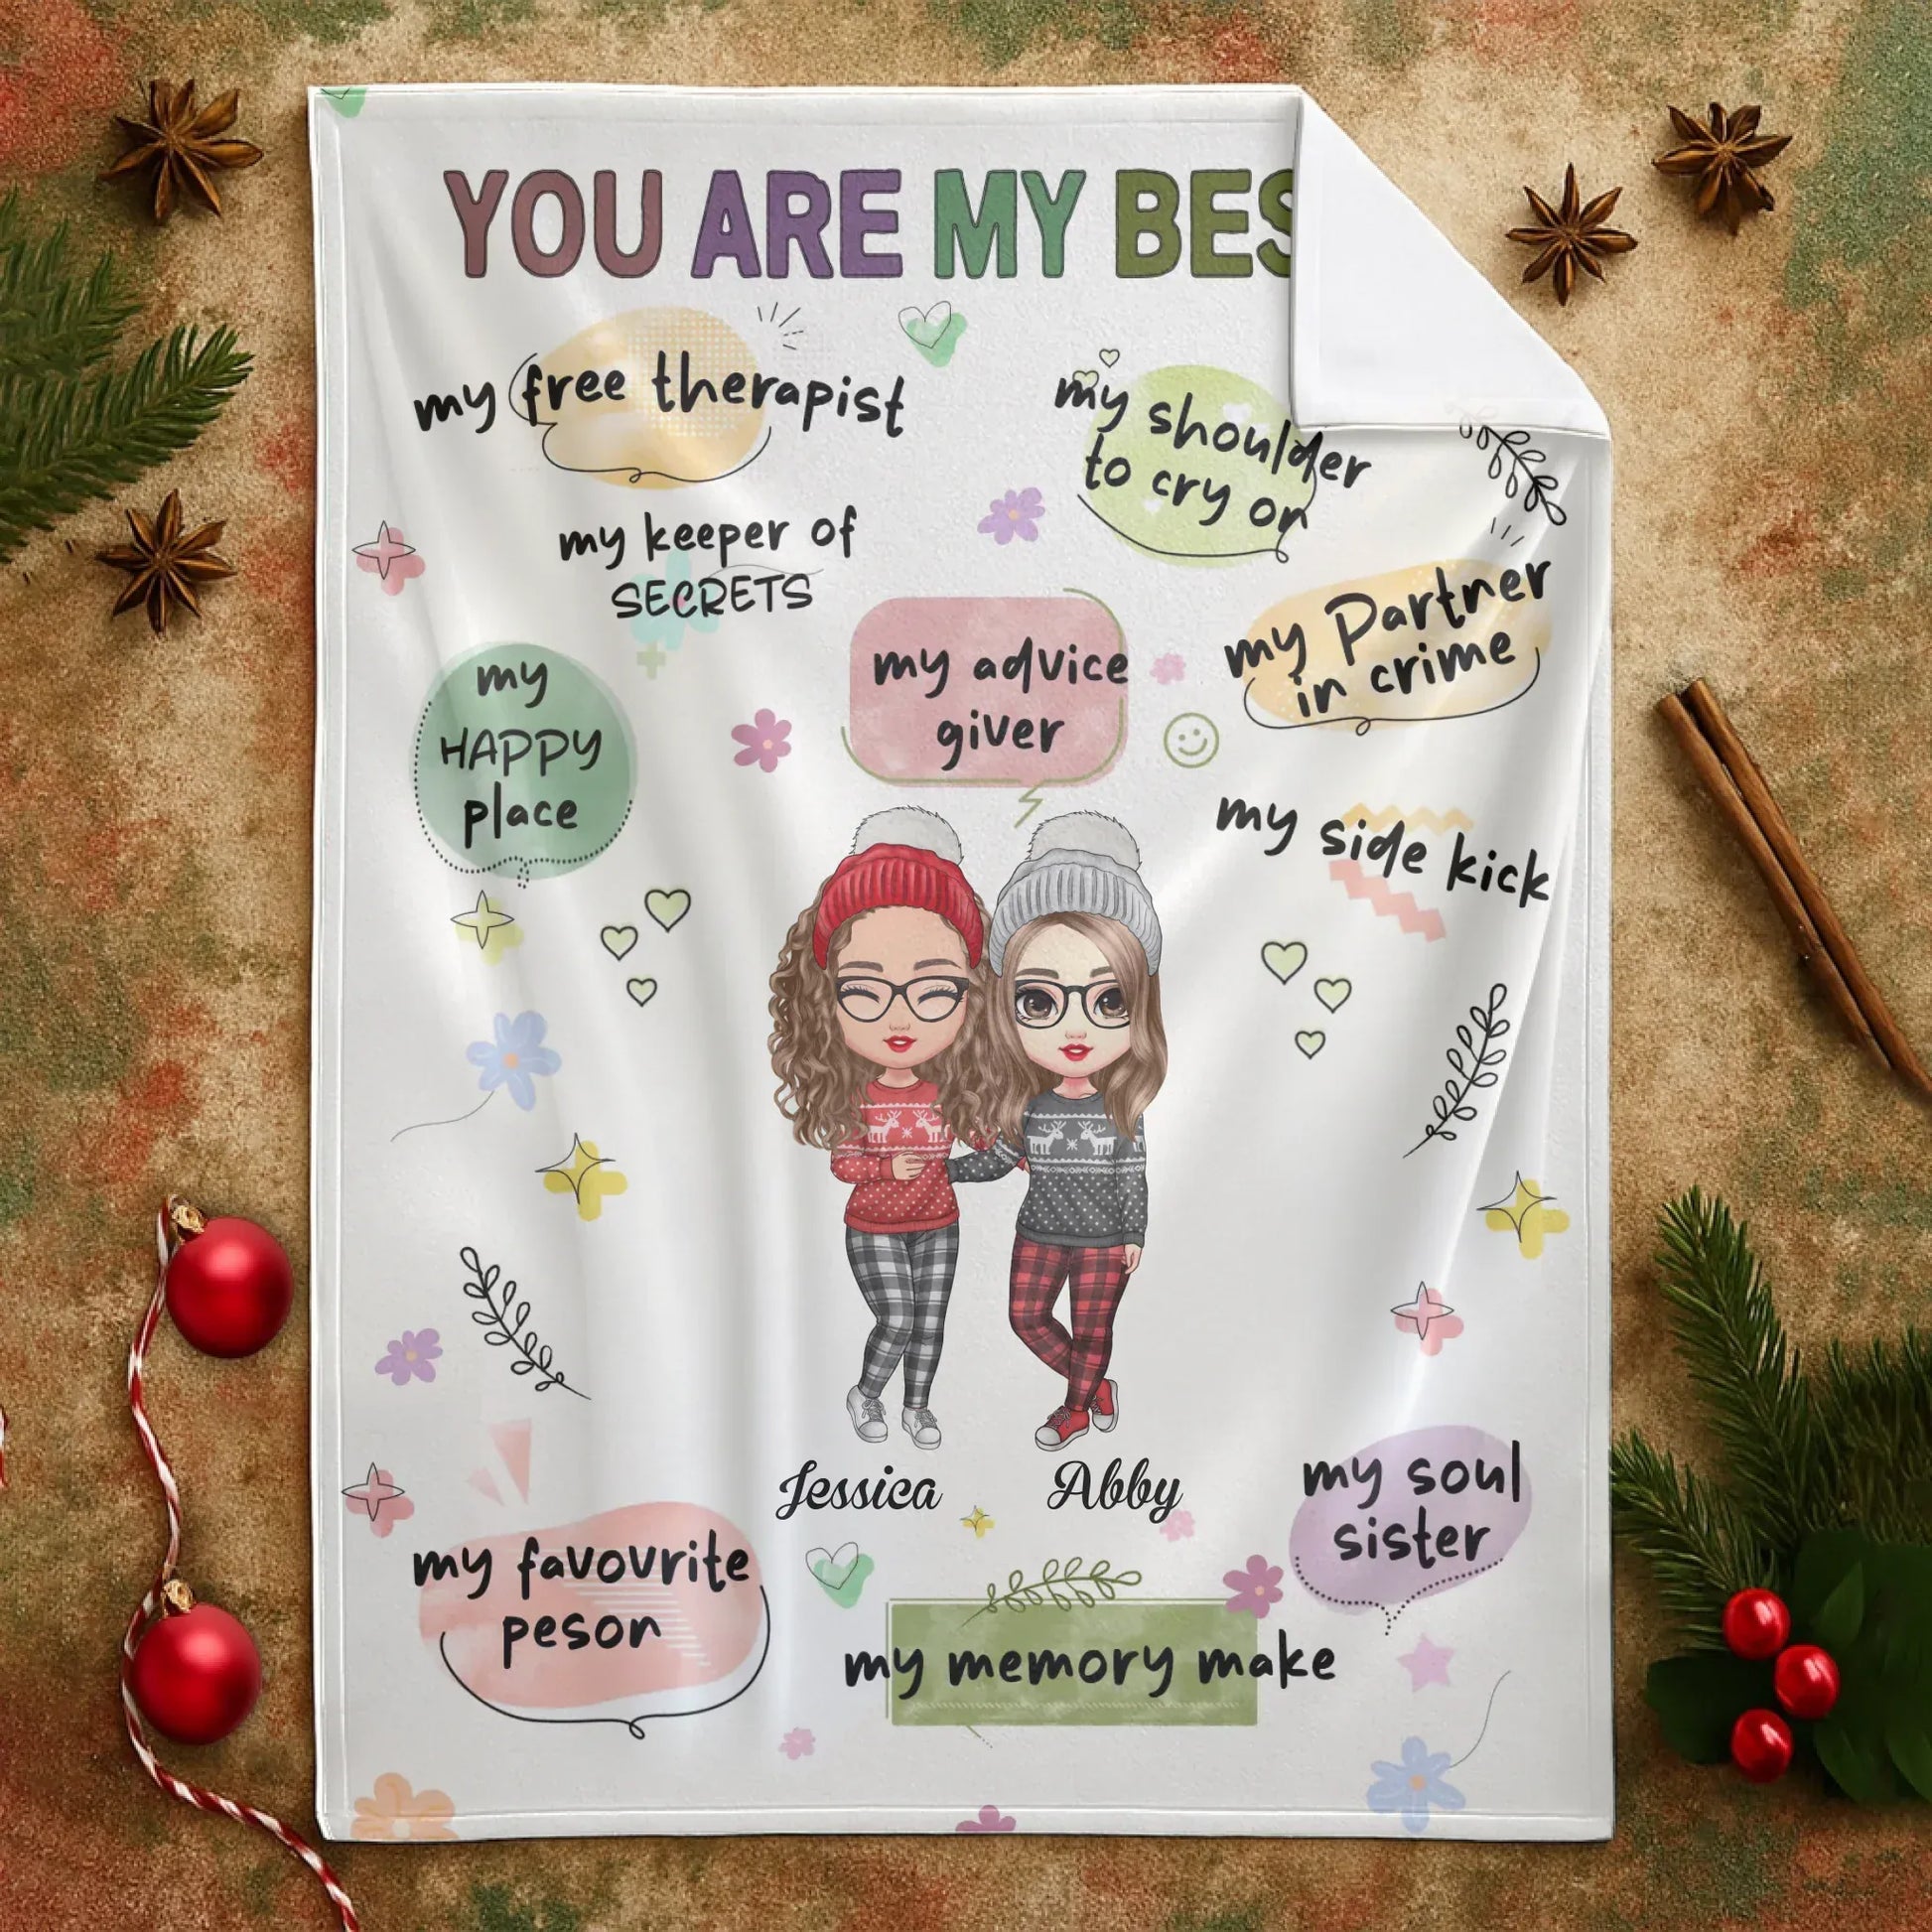 YOU ARE MY BES
my free therapist
my shoulder
to cry on
my keeper of
SECRETS
my Partner
in crime
my advice
giver
my
HAPPY
place
my side kick
Jessica
Abby
my soul
sister
my favourite
peson
my memory make